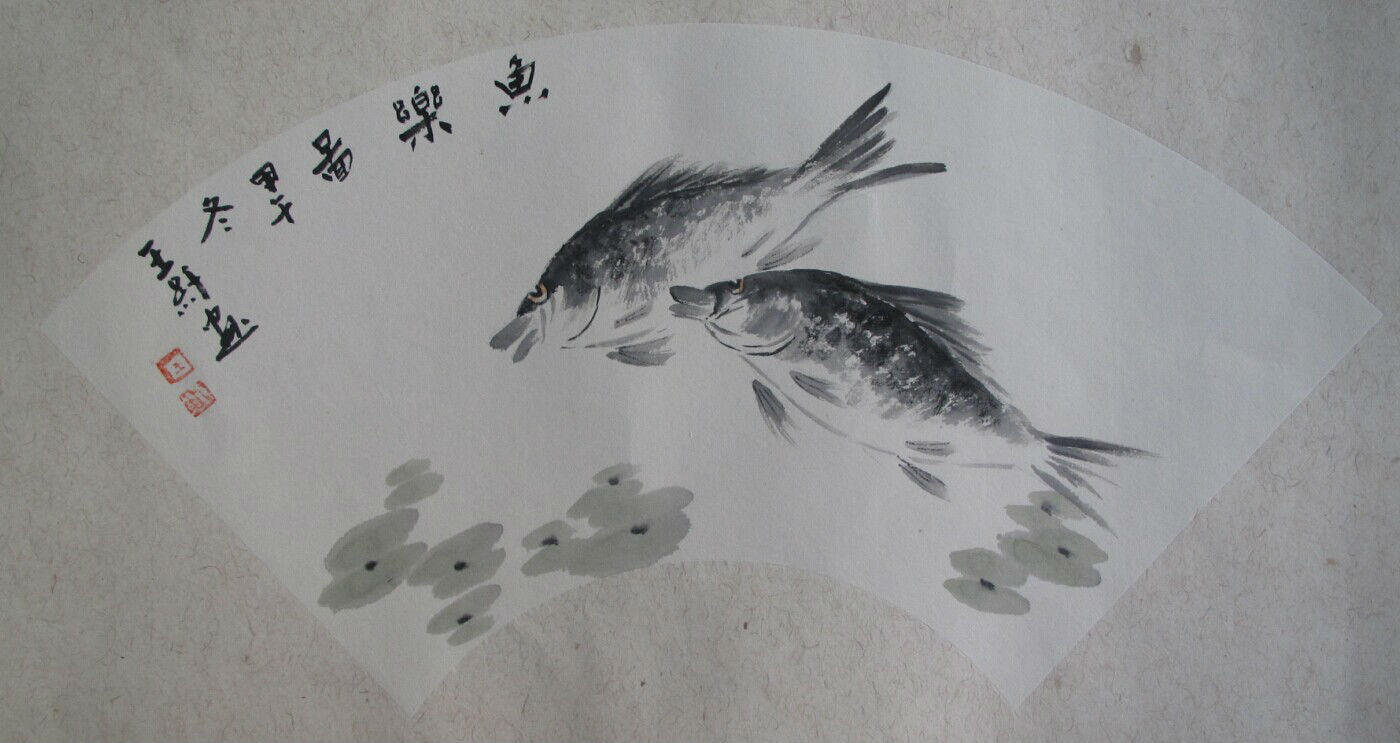 魚樂圖
甲午
冬
王 畫